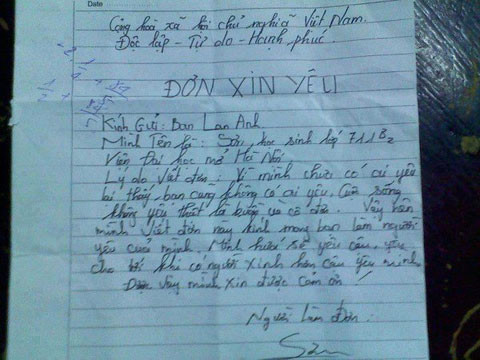 Date
Cộng hoà xã hội chủ nghĩa Việt Nam.
Độc lập - Tự do - Hạnh phúc.
ĐƠN XIN YÊU
Kính Gửi: Bạn Lan Anh
Mình Tên là: Sơn, học sinh lớp 711B2
Viện Đại học mở Hà Nội
Lý do viết đơn: Vì mình chưa có ai yêu
lại thấy bạn cũng không có ai yêu. Cuộc sống
không yêu thiết là buồn và cô đơn. Vậy nên
mình viết đơn này kính mong bạn làm người
yêu của mình. Mình hứa sẽ yêu cậu, yêu
cho tới khi có người xinh hơn cậu yêu mình
Được vậy mình xin được cảm ơn!
Người Làm Đơn: